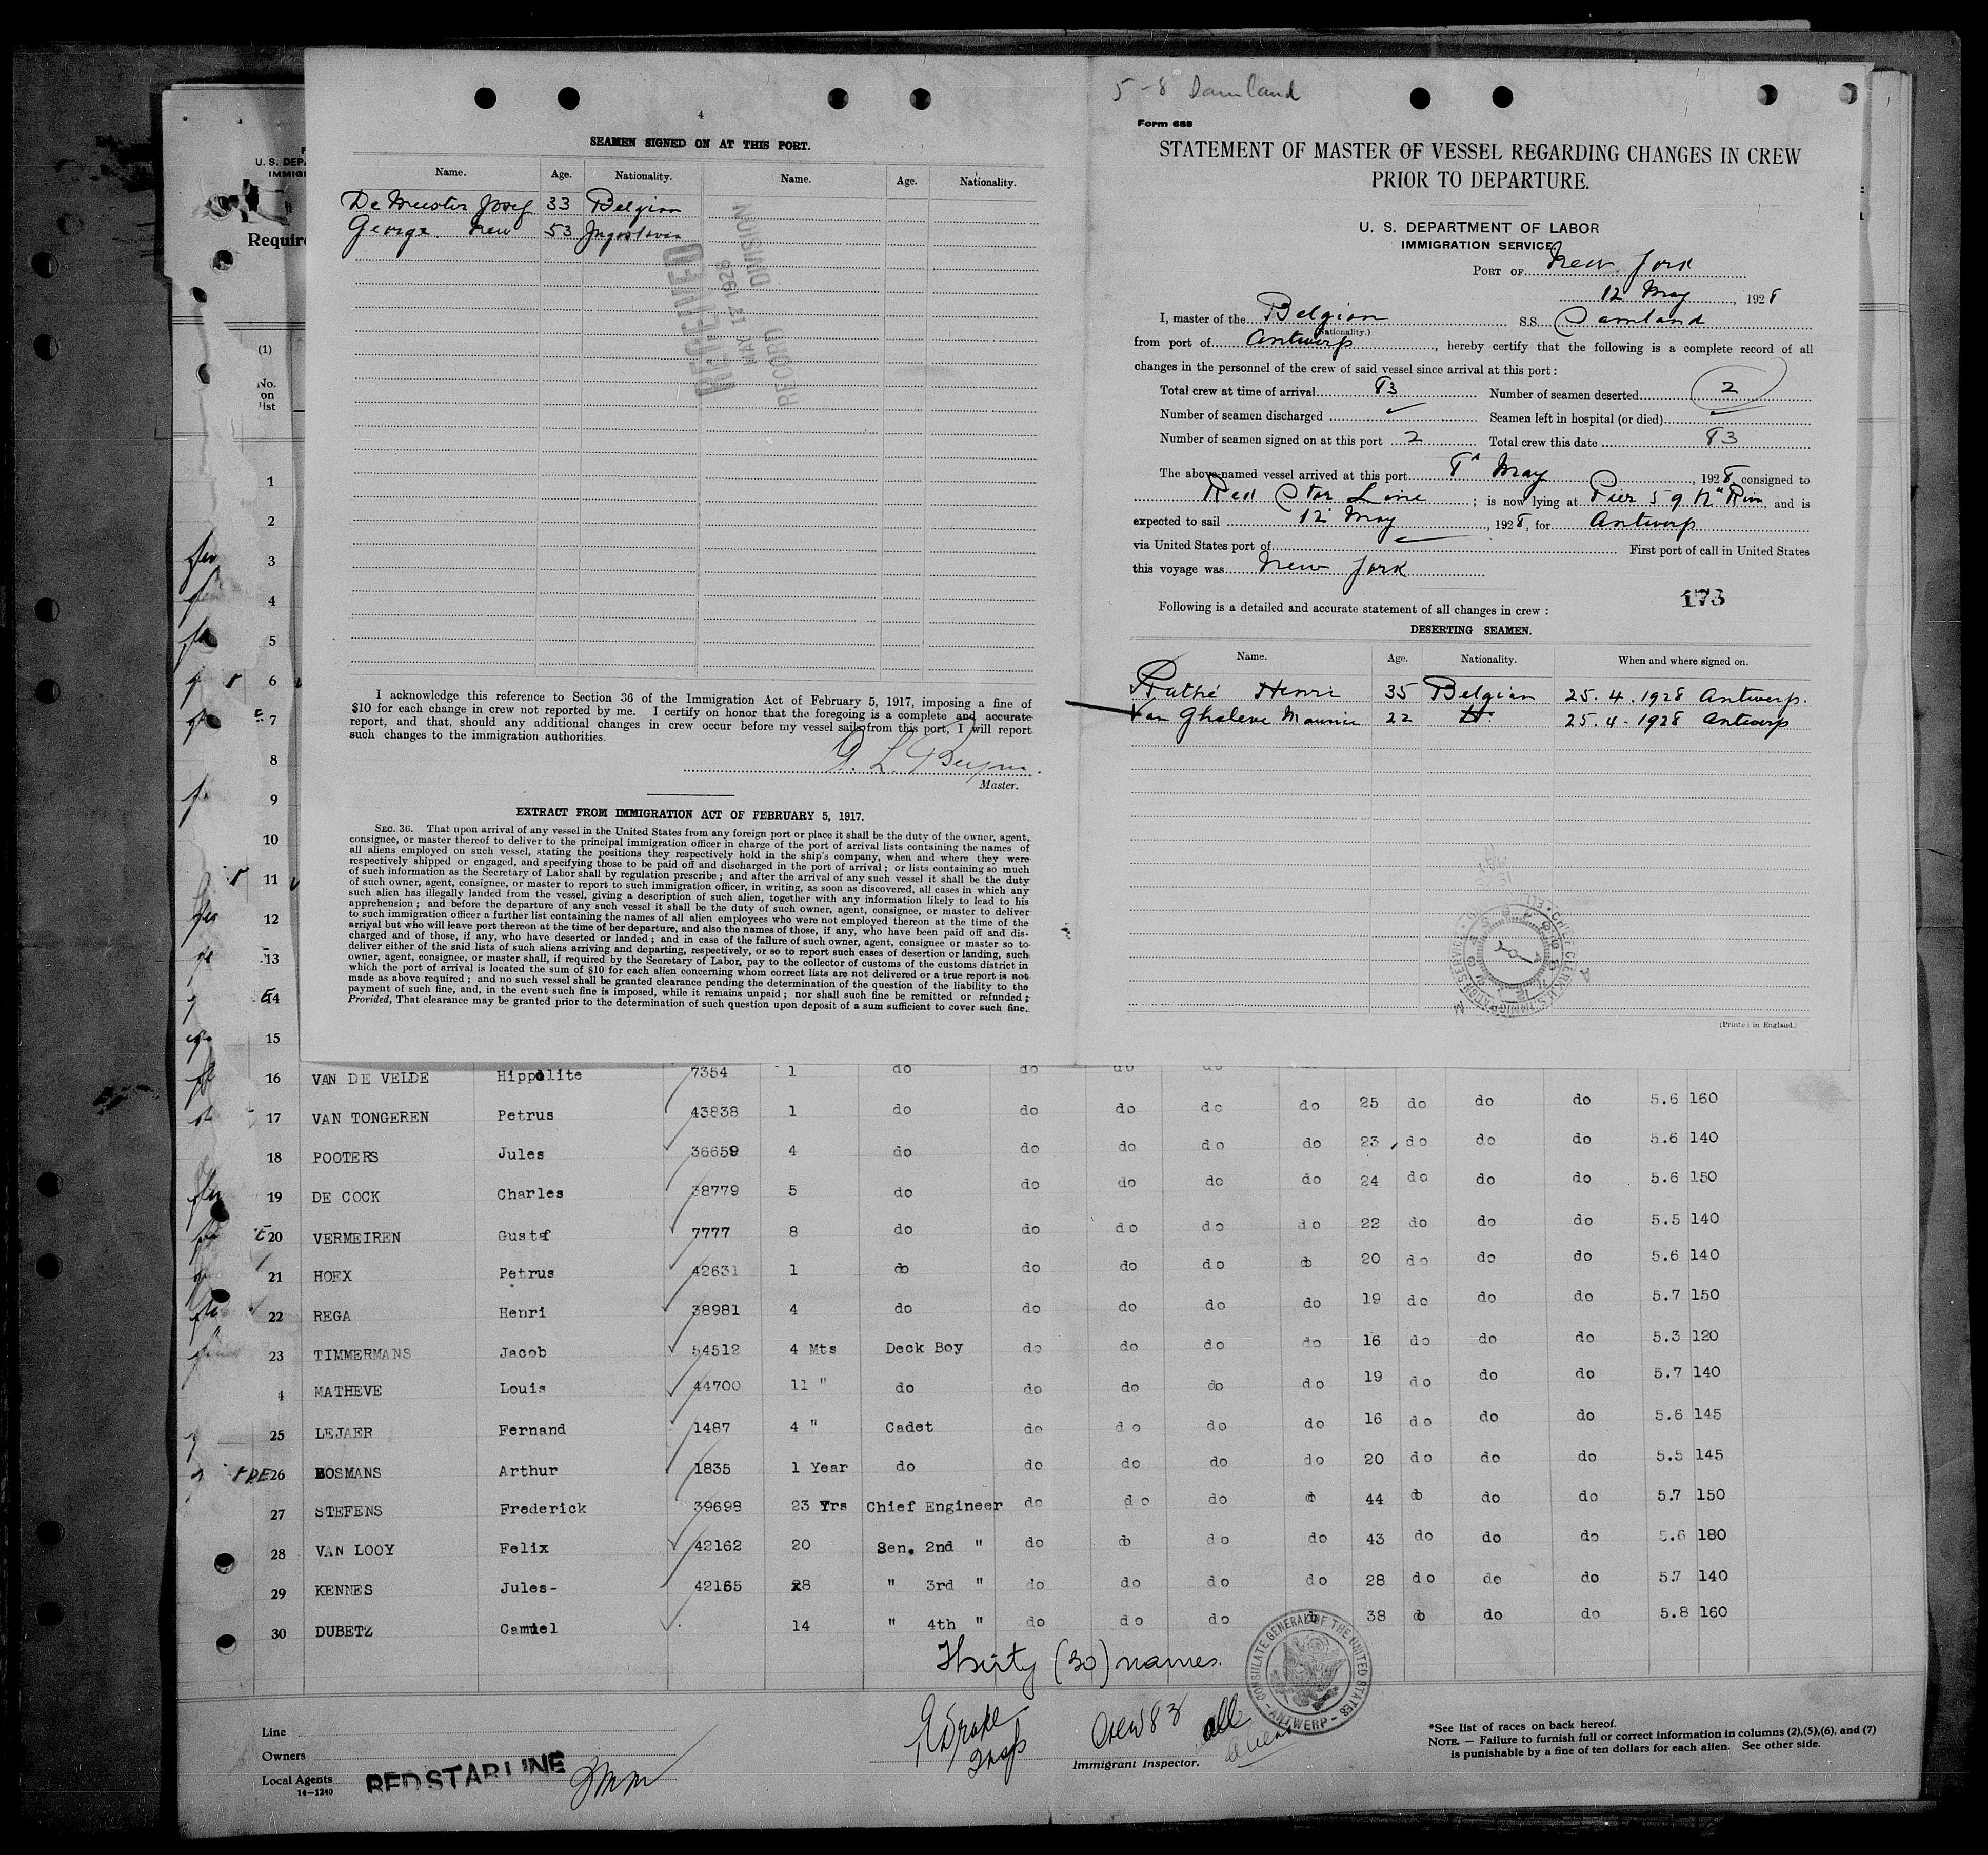 4
SEAMEN SIGNED ON AT THIS PORT.
Name. Age. Nationality. Name. Age. Nationality.
De Meester Josef 33 Belgian
George New 53 Jugoslavia
RECEIVED
MAY 17 1928
RECORD DIVISION
I acknowledge this reference to Section 36 of the Immigration Act of February 5, 1917, imposing a fine of
$10 for each change in crew not reported by me. I certify on honor that the foregoing is a complete and accurate
report, and that, should any additional changes in crew occur before my vessel sails from this port, I will report
such changes to the immigration authorities.
Master.
EXTRACT FROM IMMIGRATION ACT OF FEBRUARY 5, 1917.
SEC. 36. That upon arrival of any vessel in the United States from any foreign port or place it shall be the duty of the owner, agent,
consignee, or master thereof to deliver to the principal immigration officer in charge of the port of arrival lists containing the names of
all aliens employed on such vessel, stating the positions they respectively hold in the ship's company, when and where they were
respectively shipped or engaged, and specifying those to be paid off and discharged in the port of arrival; or lists containing so much
of such information as the Secretary of Labor shall by regulation prescribe; and after the arrival of any such vessel it shall be the duty
of such owner, agent, consignee, or master to report to such immigration officer, in writing, as soon as discovered, all cases in which any
such alien has illegally landed from the vessel, giving a description of such alien, together with any information likely to lead to his
apprehension; and before the departure of any such vessel it shall be the duty of such owner, agent, consignee, or master to deliver
to such immigration officer a further list containing the names of all alien employees who were not employed thereon at the time of the
arrival but who will leave port thereon at the time of her departure, and also the names of those, if any, who have been paid off and dis-
charged and of those, if any, who have deserted or landed; and in case of the failure of such owner, agent, consignee or master so to
deliver either of the said lists of such aliens arriving and departing, respectively, or so to report such cases of desertion or landing, such
owner, agent, consignee, or master shall, if required by the Secretary of Labor, pay to the collector of customs of the customs district in
which the port of arrival is located the sum of $10 for each alien concerning whom correct lists are not delivered or a true report is not
made as above required; and no such vessel shall be granted clearance pending the determination of the question of the liability to the
payment of such fine, and, in the event such fine is imposed, while it remains unpaid; nor shall such fine be remitted or refunded;
Provided, That clearance may be granted prior to the determination of such question upon deposit of a sum sufficient to cover such fine.
5-8 Samland
Form 689
STATEMENT OF MASTER OF VESSEL REGARDING CHANGES IN CREW
PRIOR TO DEPARTURE.
U. S. DEPARTMENT OF LABOR
IMMIGRATION SERVICE
PORT OF New York
12 May, 1928
I, master of the Belgian S.S. Samland
(Nationality.)
from port of Antwerp, hereby certify that the following is a complete record of all
changes in the personnel of the crew of said vessel since arrival at this port:
Total crew at time of arrival 83 Number of seamen deserted 2
Number of seamen discharged Seamen left in hospital (or died)
Number of seamen signed on at this port 2 Total crew this date 83
The above-named vessel arrived at this port 8 May, 1928, consigned to
Red Star Line; is now lying at Pier 59 N River, and is
expected to sail 12 May, 1928, for Antwerp
via United States port of First port of call in United States
this voyage was New York
Following is a detailed and accurate statement of all changes in crew:
173
DESERTING SEAMEN.
Name. Age. Nationality. When and where signed on.
Henri 35 Belgian 25.4.1928 Antwerp.
Van 22 25.4.1928 Antwerp
(Printed in England.)
U. S. DEPA
IMMIG
Require
(1)
No.
on
list
1
2
3
4
5
6
7
8
9
10
11
12
13
14
15
16 VAN DE VELDE Hippolite 7354 1 do do do do
17 VAN TONGEREN Petrus 43838 1 do do do do do 25 do do do 5.6 160
18 POOTERS Jules 36659 4 do do do do do 23 do do do 5.6 140
19 DE COCK Charles 38779 5 do do do do do 24 do do do 5.6 150
20 VERMEIREN Gustaf 7777 8 do do do do do 22 do do do 5.5 140
21 HOEX Petrus 42631 1 do do do do do 20 do do do 5.6 140
22 REGA Henri 38981 4 do do do do do 19 do do do 5.7 150
23 TIMMERMANS Jacob 54512 4 Mts Deck Boy do do do do 16 do do do 5.3 120
4 MATHEVE Louis 44700 11 " do do do do do 19 do do do 5.7 140
25 LEJAER Fernand 1487 4 " Cadet do do do do 16 do do do 5.6 145
26 BOSMANS Arthur 1835 1 Year do do do do do 20 do do do 5.5 145
27 STEFENS Frederick 39698 23 Yrs Chief Engineer do do do do 44 do do do 5.7 150
28 VAN LOOY Felix 42162 20 Sen. 2nd " do do do do 43 do do do 5.6 180
29 KENNES Jules- 42165 28 " 3rd " do do do do 28 do do do 5.7 140
30 DUBETZ Camiel 14 " 4th " do do do do 38 do do do 5.8 160
Thirty (30) names.
CONSULATE GENERAL OF THE UNITED STATES
- ANTWERP -
Crew 83 all aliens
Immigrant Inspector.
Line
Owners
Local Agents RED STAR LINE
14-1240
*See list of races on back hereof.
NOTE. — Failure to furnish full or correct information in columns (2),(5),(6), and (7)
is punishable by a fine of ten dollars for each alien. See other side.